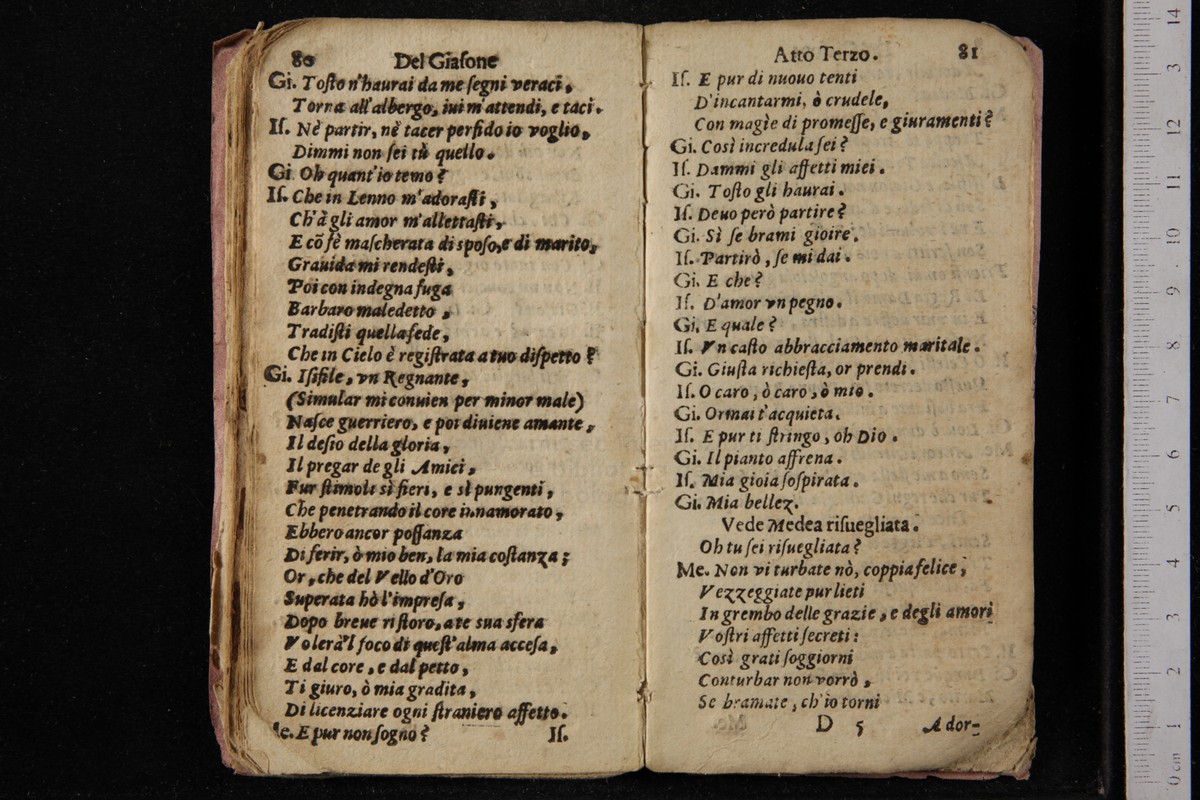 80 Del Giasone
Gi. Tosto n'haurai da me segni veraci.
Torna all'albergo, iui m'attendi, e taci.
Is. Nè partir, nè tacer perfido io voglio,
Dimmi non sei tù quello.
Gi Oh quant'io temo?
Is. Che in Lenno m'adorasti,
Ch'à gli amor m'allettasti,
E cõ fè mascherata di sposo, e di marito,
Grauida mi rendesti,
Poi con indegna fuga
Barbaro maledetto,
Tradisti quella fede,
Che in Cielo è registrata a tuo dispetto?
Gi. Isifile, vn Regnante,
(Simular mi conuien per minor male)
Nasce guerriero, e poi diuiene amante,
Il desio della gloria,
Il pregar de gli Amici,
Fur stimoli sì fieri, e sì pungenti,
Che penetrando il core innamorato,
Ebbero ancor possanza
Di ferir, ò mio ben, la mia costanza;
Or, che del Vello d'Oro
Superata hò l'impresa,
Dopo breue ristoro, a te sua sfera
Volerà'l foco di quest'alma accesa,
E dal core, e dal petto,
Ti giuro, ò mia gradita,
Di licenziare ogni straniero affetto.
Me. E pur non sogno? Is.
Atto Terzo. 81
Is. E pur di nuouo tenti
D'incantarmi, ò crudele,
Con magie di promesse, e giuramenti?
Gi. Così incredula sei?
Is. Dammi gli affetti miei.
Gi. Tosto gli haurai.
Is. Deuo però partire?
Gi. Sì se brami gioire.
Is. Partirò, se mi dai.
Gi. E che?
Is. D'amor vn pegno.
Gi. E quale?
Is. Vn casto abbracciamento maritale.
Gi. Giusta richiesta, or prendi.
Is. O caro, ò caro, ò mio.
Gi. Ormai t'acquieta.
Is. E pur ti stringo, oh Dio.
Gi. Il pianto affrena.
Is. Mia gioia sospirata.
Gi. Mia bellez.
Vede Medea risuegliata.
Oh tu sei risuegliata?
Me. Non vi turbate nò, coppia felice,
Vezzeggiate pur lieti
In grembo delle grazie, e degli amori
Vostri affetti secreti:
Così grati soggiorni
Conturbar non vorrò,
Se bramate, ch'io torni
D 5 Ador-